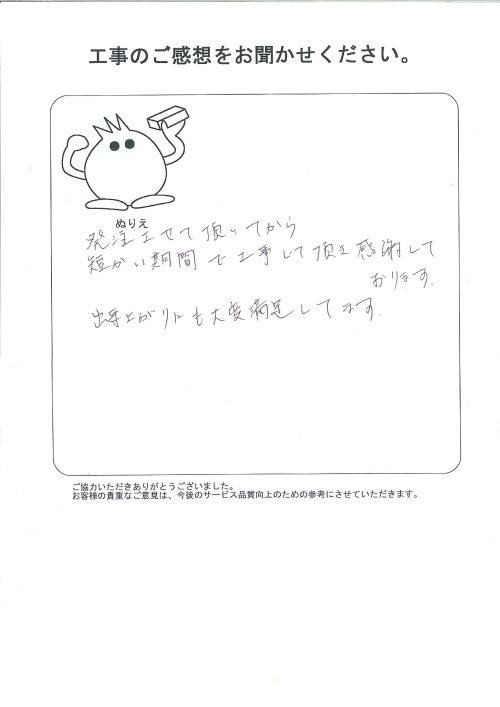 工事のご感想をお聞かせください。
ぬりえ
発注させて頂いてから
短かい期間で工事して頂き感謝して
おります。
出来上がりにも大変満足してます。
ご協力いただきありがとうございました。
お客様の貴重なご意見は、今後のサービス品質向上のための参考にさせていただきます。